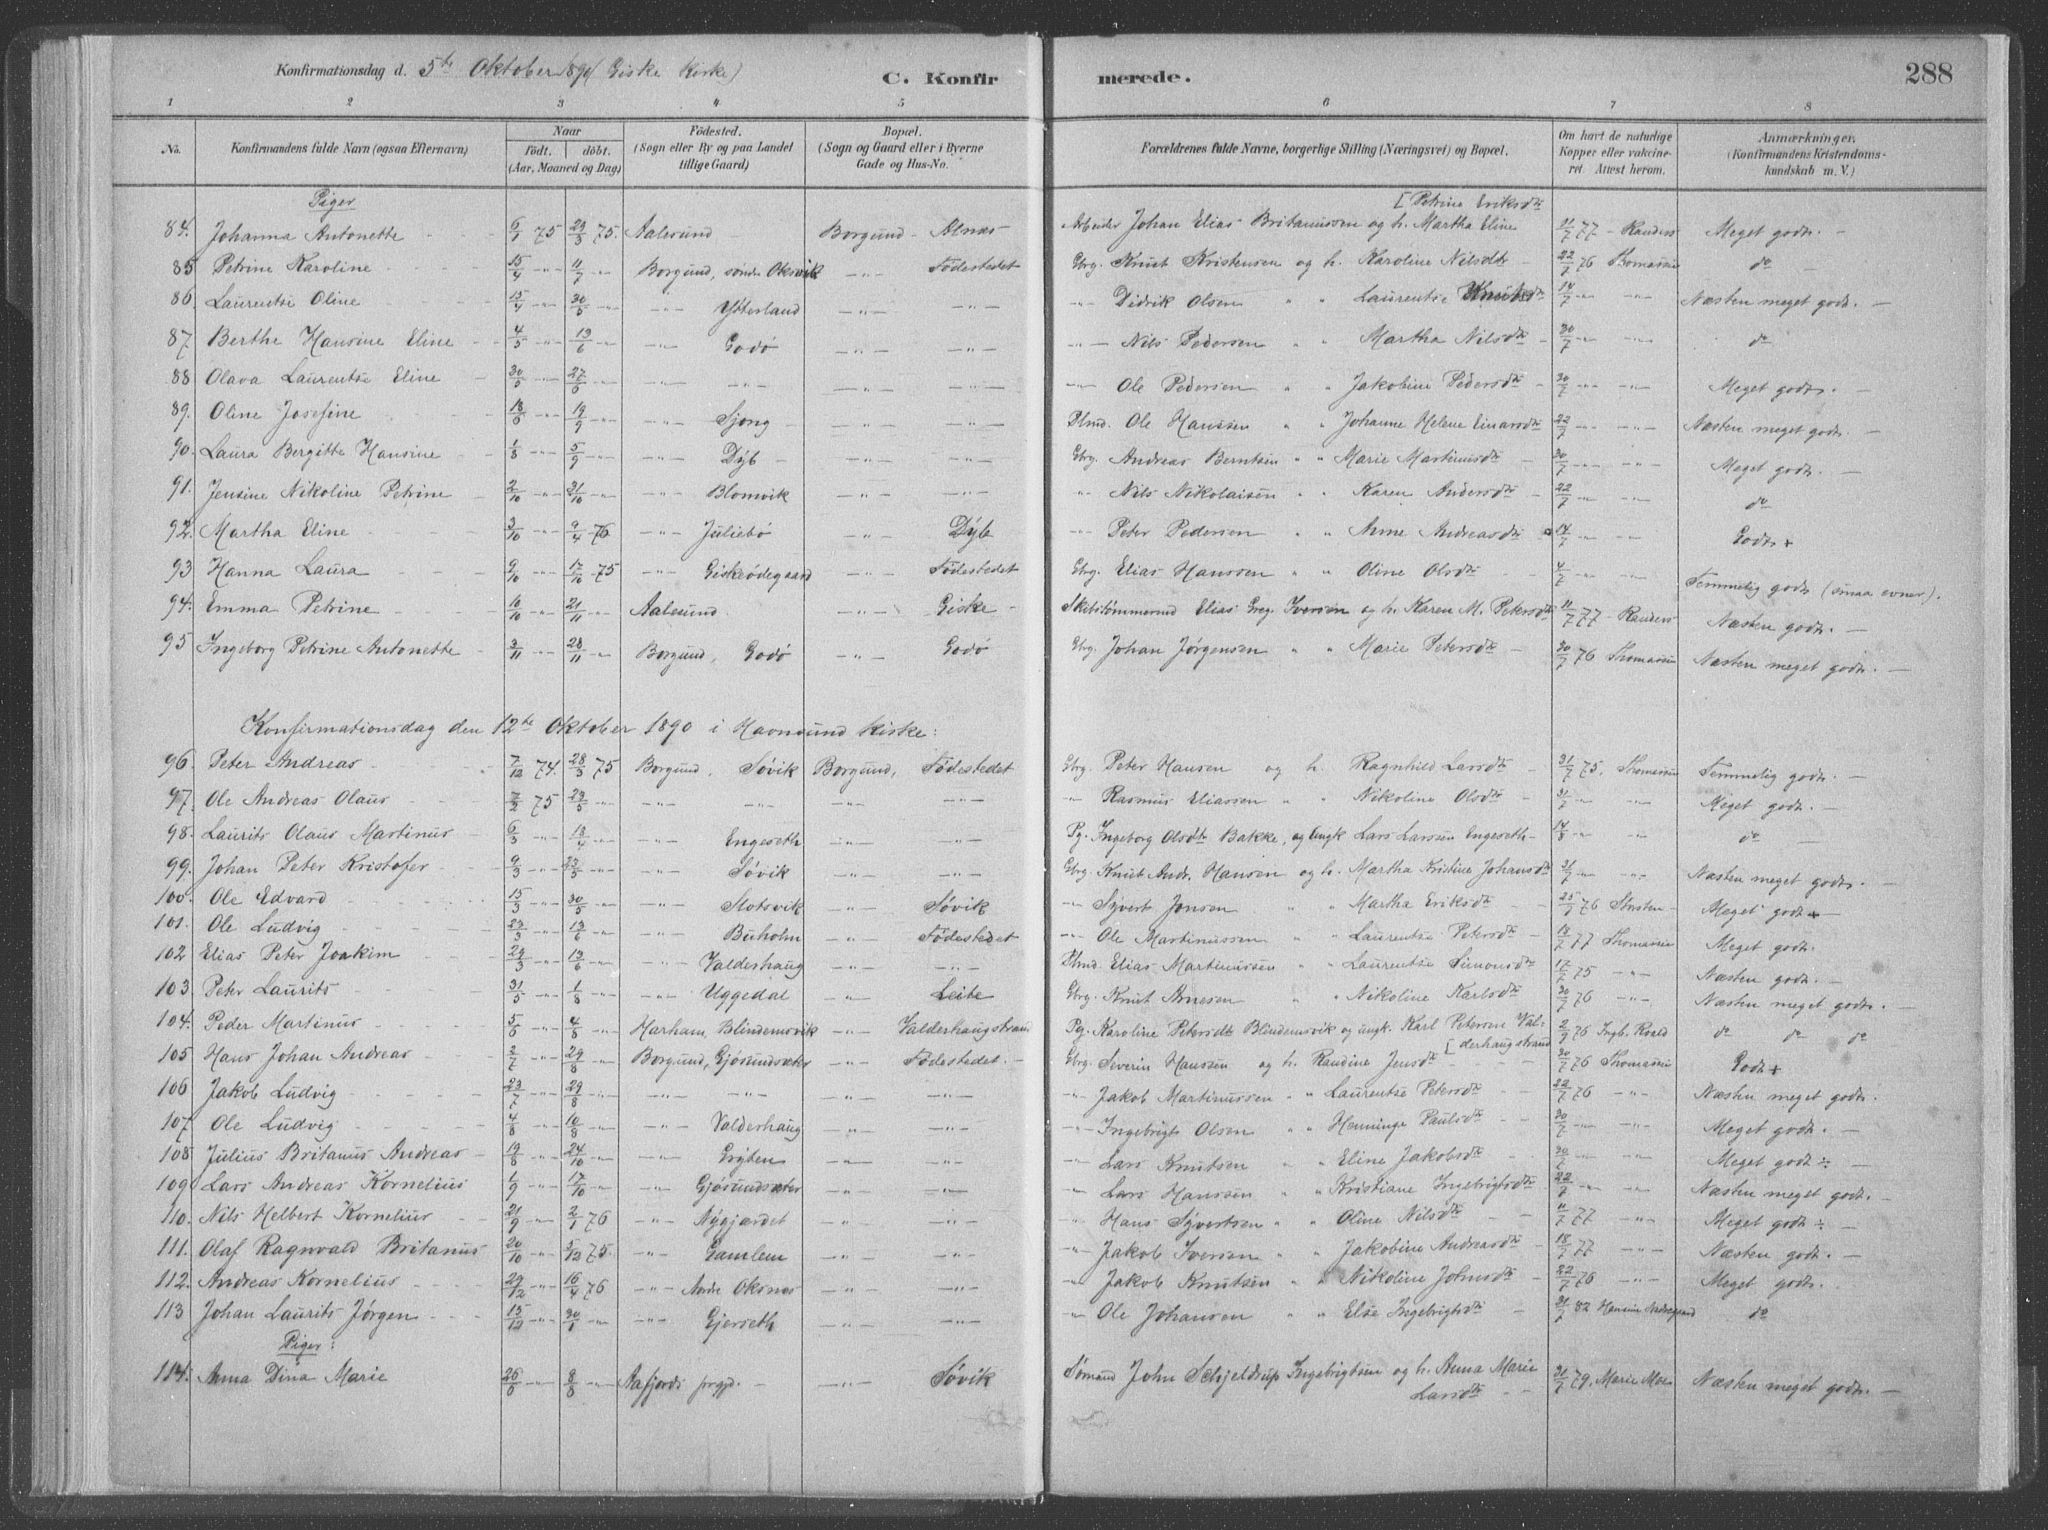 Konfirmationsdag d. 5te Oktober 1890 (Giske Kirke) C. Konfirmerede. 288
1 2 3 4 5 6 7 8
No. Konfirmandens fulde Navn (ogsaa Efternavn) Naar födt. döbt. (Aar, Maaned og Dag) Födested. (Sogn eller By og paa Landet tillige Gaard) Bopæl. (Sogn og Gaard eller i Byerne Gade og Hus-No. Forældrenes fulde Navne, borgerlige Stilling (Næringsvei) og Bopæl. Om havt de naturlige Kopper eller vakcineret Attest herom. Anmærkninger. (Konfirmandens Kristendomskundskab m. V.)
Piger [Petrine Eriksdtr
84. Johanna Antonette 6/1 75 29/3 75. Aalesund Borgund - Alnæs Arbeider Johan Elias Britanussen og h. Martha Eline 11/7 77 - Randers Meget godt. —
85 Petrine Karoline 15/4 -"- 11/7 -"- Borgund, søndre Oksvik -"- Födestedet Gbrg. Knut Kristensen og h. Karoline Nilsdtr 22/7 76 Thomassen do —
86 Laurentse Oline 15/4 -"- 30/5 -"- -"- Ytterland -"- -"- -"- Didrik Olsen " " Laurentse Knutsdtr 14/7 -"- -"- Næsten meget godt. —
87 Berthe Hansine Eline 4/5 -"- 13/6 -"- -"- Godø -"- -"- -"- Nils Pedersen " " Martha Nilsdtr 30/7 -"- -"- do
88 Olava Laurentse Eline 30/5 -"- 27/6 -"- -"- -"- -"- -"- -"- Ole Pedersen " " Jakobine Pedersdtr 30/7 -"- -"- Meget godt. —
89. Oline Josefine 18/6 -"- 19/9 -"- -"- Sjong -"- -"- Plmd. Ole Hanssen " " Johanne Helene Einarsdtr 22/7 -"- -"- Næsten meget godt. —
90. Laura Bergitte Hansine 1/8 -"- 5/9 -"- -"- Dyb -"- -"- Gbrg. Andreas Berntsen " " Marie Martinusdtr 30/7 -"- -"- Meget godt. —
91. Jensine Nikoline Petrine 2/10 -"- 21/10 -"- -"- Blomvik -"- -"- " Nils Nikolaisen " " Karen Andersdtr 22/7 -"- -"- do
92. Martha Eline 3/10 -"- 9/4 76 -"- Juliebø -"- Dyb -"- Peter Pedersen " " Anne Andreasdtr 14/7 -"- -"- Godt +
93 Hanna Laura 9/10 -"- 17/10 75 -"- Giskeödegaard -"- Födestedet Gbrg. Elias Hanssen " " Oline Olsdtr 4/7 -"- -"- Temmelig godt (smaa evner).
94. Emma Petrine 10/10 -"- 21/11 -"- Aalesund -"- Giske Elias Greg. Iversen og h. Karen M. Petersdtr 11/7 77 - Randers Næsten godt. —
95 Ingeborg Petrine Antonette 3/11 -"- 28/11 -"- Borgund, Godø -"- Godø Gbrg. Johan Jørgensen " " Marie Petersdtr 30/7 76 Thomassen Næsten meget godt. —
Konfirmationsdag den 12te Oktober 1890 i Havnsund Kirke:
96. Peter Andreas 7/12 74. 28/3 75 Borgund, Søvik Borgund, Födestedet Gbrg. Peter Hansen og h. Ragnhild Larsdtr 31/7 75, Thomassen Temmelig godt. —
97. Ole Andreas Olaus 7/3 75 29/5 -"- -"- -"- -"- -"- " Rasmus Eliassen " " Nikoline Olsdtr 31/7 -"- -"- Meget godt. —
98. Laurits Olaus Martinus 6/3 -"- 18/4 -"- -"- Engeseth -"- -"- Pg. Ingeborg Olsdtr Bakke, og Ungk Lars Larssen Engeseth 14/8 -"- " do —
99. Johan Peter Kristofer 9/3 -"- 23/5 -"- -"- Søvik -"- -"- Gbrg. Knut Andr. Hansen og h. Martha Kristine Johansdtr 31/7 -"- -"- Næsten meget godt. —
100. Ole Edvard 15/3 -"- 30/5 -"- -"- Slotsvik -"- Søvik -"- Syvert Jonsen " " Martha Eriksdtr 25/7 76 Meget godt +
101. Ole Ludvig 23/3 -"- 13/6 -"- -"- Buholm -"- Födestedet -"- Ole Martinussen " " Laurentse Petersdtr 18/7 77 Thomassen Meget godt.
102 Elias Peter Joakim 29/3 -"- 13/6 -"- -"- Valderhaug -"- -"- Plmd. Elias Martinussen " " Laurentse Simonsdtr 17/7 75 -"- Næsten godt. —
103. Peter Laurits 31/5 -"- 1/8 -"- -"- Uggedal -"- Leite Gbrg. Knut Arnesen " " Nikoline Karlsdtr 30/7 76 -"- Næsten meget godt. —
104. Peder Martinus 5/6 -"- 4/8 -"- Harham, Blindemsvik -"- Valderhaugstrand Pg. Karoline Petersdtr Blindemsvik og ungk. Karl Petersen Val- 2/9 76 Ingb. Roald do do do
[derhaugstrand
105 Hans Johan Andreas 2/7 -"- 29/8 -"- Borgund, Gjøsundsæter -"- Födestedet. Gbrg. Severin Hanssen og h. Raudine Jensdtr 30/7 76 Thomassen Godt +
106 Jakob Ludvig 23/7 -"- 29/8 -"- -"- -"- -"- -"- -"- Jakob Martinussen " " Laurentse Petersdtr 22/7 76 -"- Næsten meget godt.
107. Ole Ludvig 4/8 -"- 10/8 -"- -"- Valderhaug -"- -"- -"- Ingebrigt Olsen " " Henninge Paulsdtr 30/7 -"- -"- Meget godt. —
108. Julius Britanus Andreas 19/8 -"- 24/10 -"- -"- Gryten -"- -"- " Lars Knutsen " " Eline Jakobsdtr 30/7 -"- -"- Meget godt ÷
109 Lars Andreas Kornelius 1/9 -"- 17/10 -"- -"- Gjøsundsæter -"- -"- " Lars Hanssen " " Kristiane Ingebrigtsdtr 22/7 -"- -"- Næsten meget godt. —
110. Nils Helbert Kornelius 21/9 -"- 2/1 76 -"- Nygjærdet -"- -"- " Hans Syvertsen " " Oline Nilsdtr 11/7 77 -"- Meget godt ÷
111. Olaf Ragnvald Britanus 20/10 -"- 5/12 75. -"- Gamlem -"- -"- -"- Jakob Iversen " " Jakobine Andreasdtr 18/7 77 -"- Næsten godt. —
112. Andreas Kornelius 29/12 -"- 16/4 76 -"- Nordre Oksnæs -"- -"- -"- Jakob Knutsen " " Nikoline Johnsdtr 22/7 76 -"- Meget godt.
113 Johan Laurits Jørgen 15/12 -"- 30/1 -"- -"- Gjerseth -"- -"- " Ole Johansen " " Else Ingebrigtsdtr 21/7 82 do
Piger:
114. Anna Dina Marie 26/6 -"- 8/8 -"- Aafjords prgjd. -"- Søvik Sømand John Schjeldrup Ingebrigtsen og h. Anna Marie 31/7 79. Marie Moe Næsten meget godt. —
Larsdtr